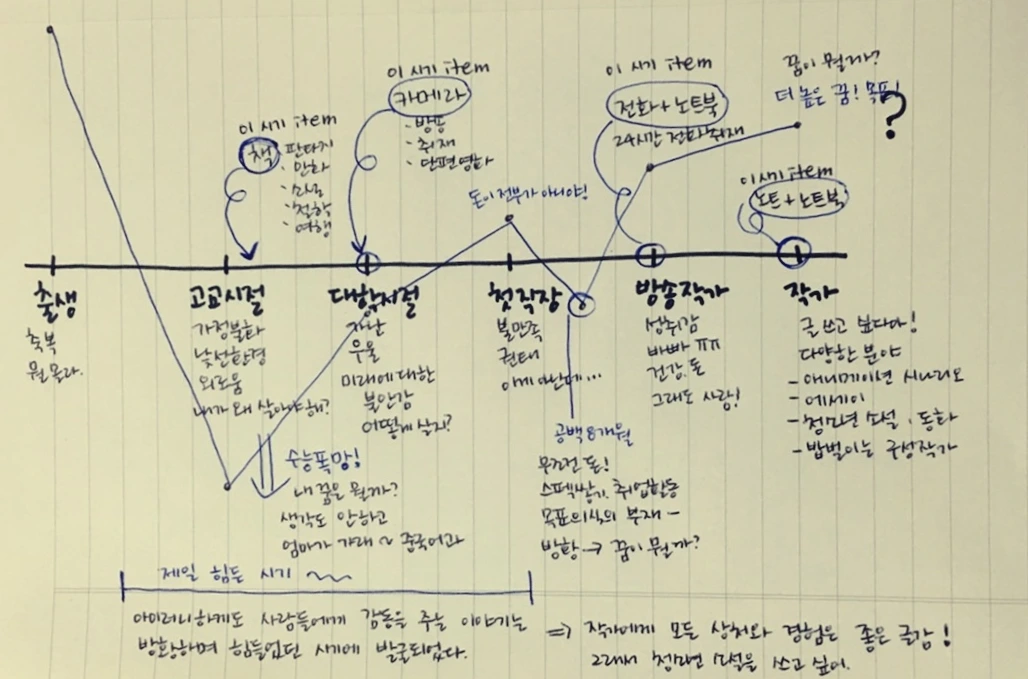 이 시기 item
책
판타지
· 만화
· 소설
· 철학
· 여행
이 시기 item
카메라
· 방송
· 취재
· 단편영화
돈이 전부가 아니야!
이 시기 item
전화 + 노트북
24시간 전화취재
꿈이 뭘까?
더 높은 꿈! 목표!
?
이 시기 item
노트 + 노트북
출생
축복
뭘 몰라.
고교시절
가정불화
낯선환경
외로움
내가 왜 살아야 해?
수능폭망!
내 꿈은 뭘까?
생각도 안하고
엄마가 가래 ~ 중국어과
대학시절
가난
우울
미래에 대한
불안감
어떻게 살지?
첫 직장
불만족
권태
이게 아닌데...
공백 8개월
무조건 돈!
스펙쌓기, 취업활동
목표의식의 부재 -
방황 → 꿈이 뭘까?
방송작가
성취감
바빠 ㅠㅠ
건강, 돈
그래도 사랑!
작가
글 쓰고 싶다아!
다양한 분야
- 애니메이션 시나리오
- 에세이
- 청소년 소설, 동화
- 밥벌이는 구성작가
제일 힘든 시기 ~~
아이러니하게도 사람들에게 감동을 주는 이야기는
방황하며 힘들었던 시기에 발굴되었다.
⇒ 작가에게 모든 상처와 경험은 좋은 글감!
그래서 청소년 소설을 쓰고 싶어.